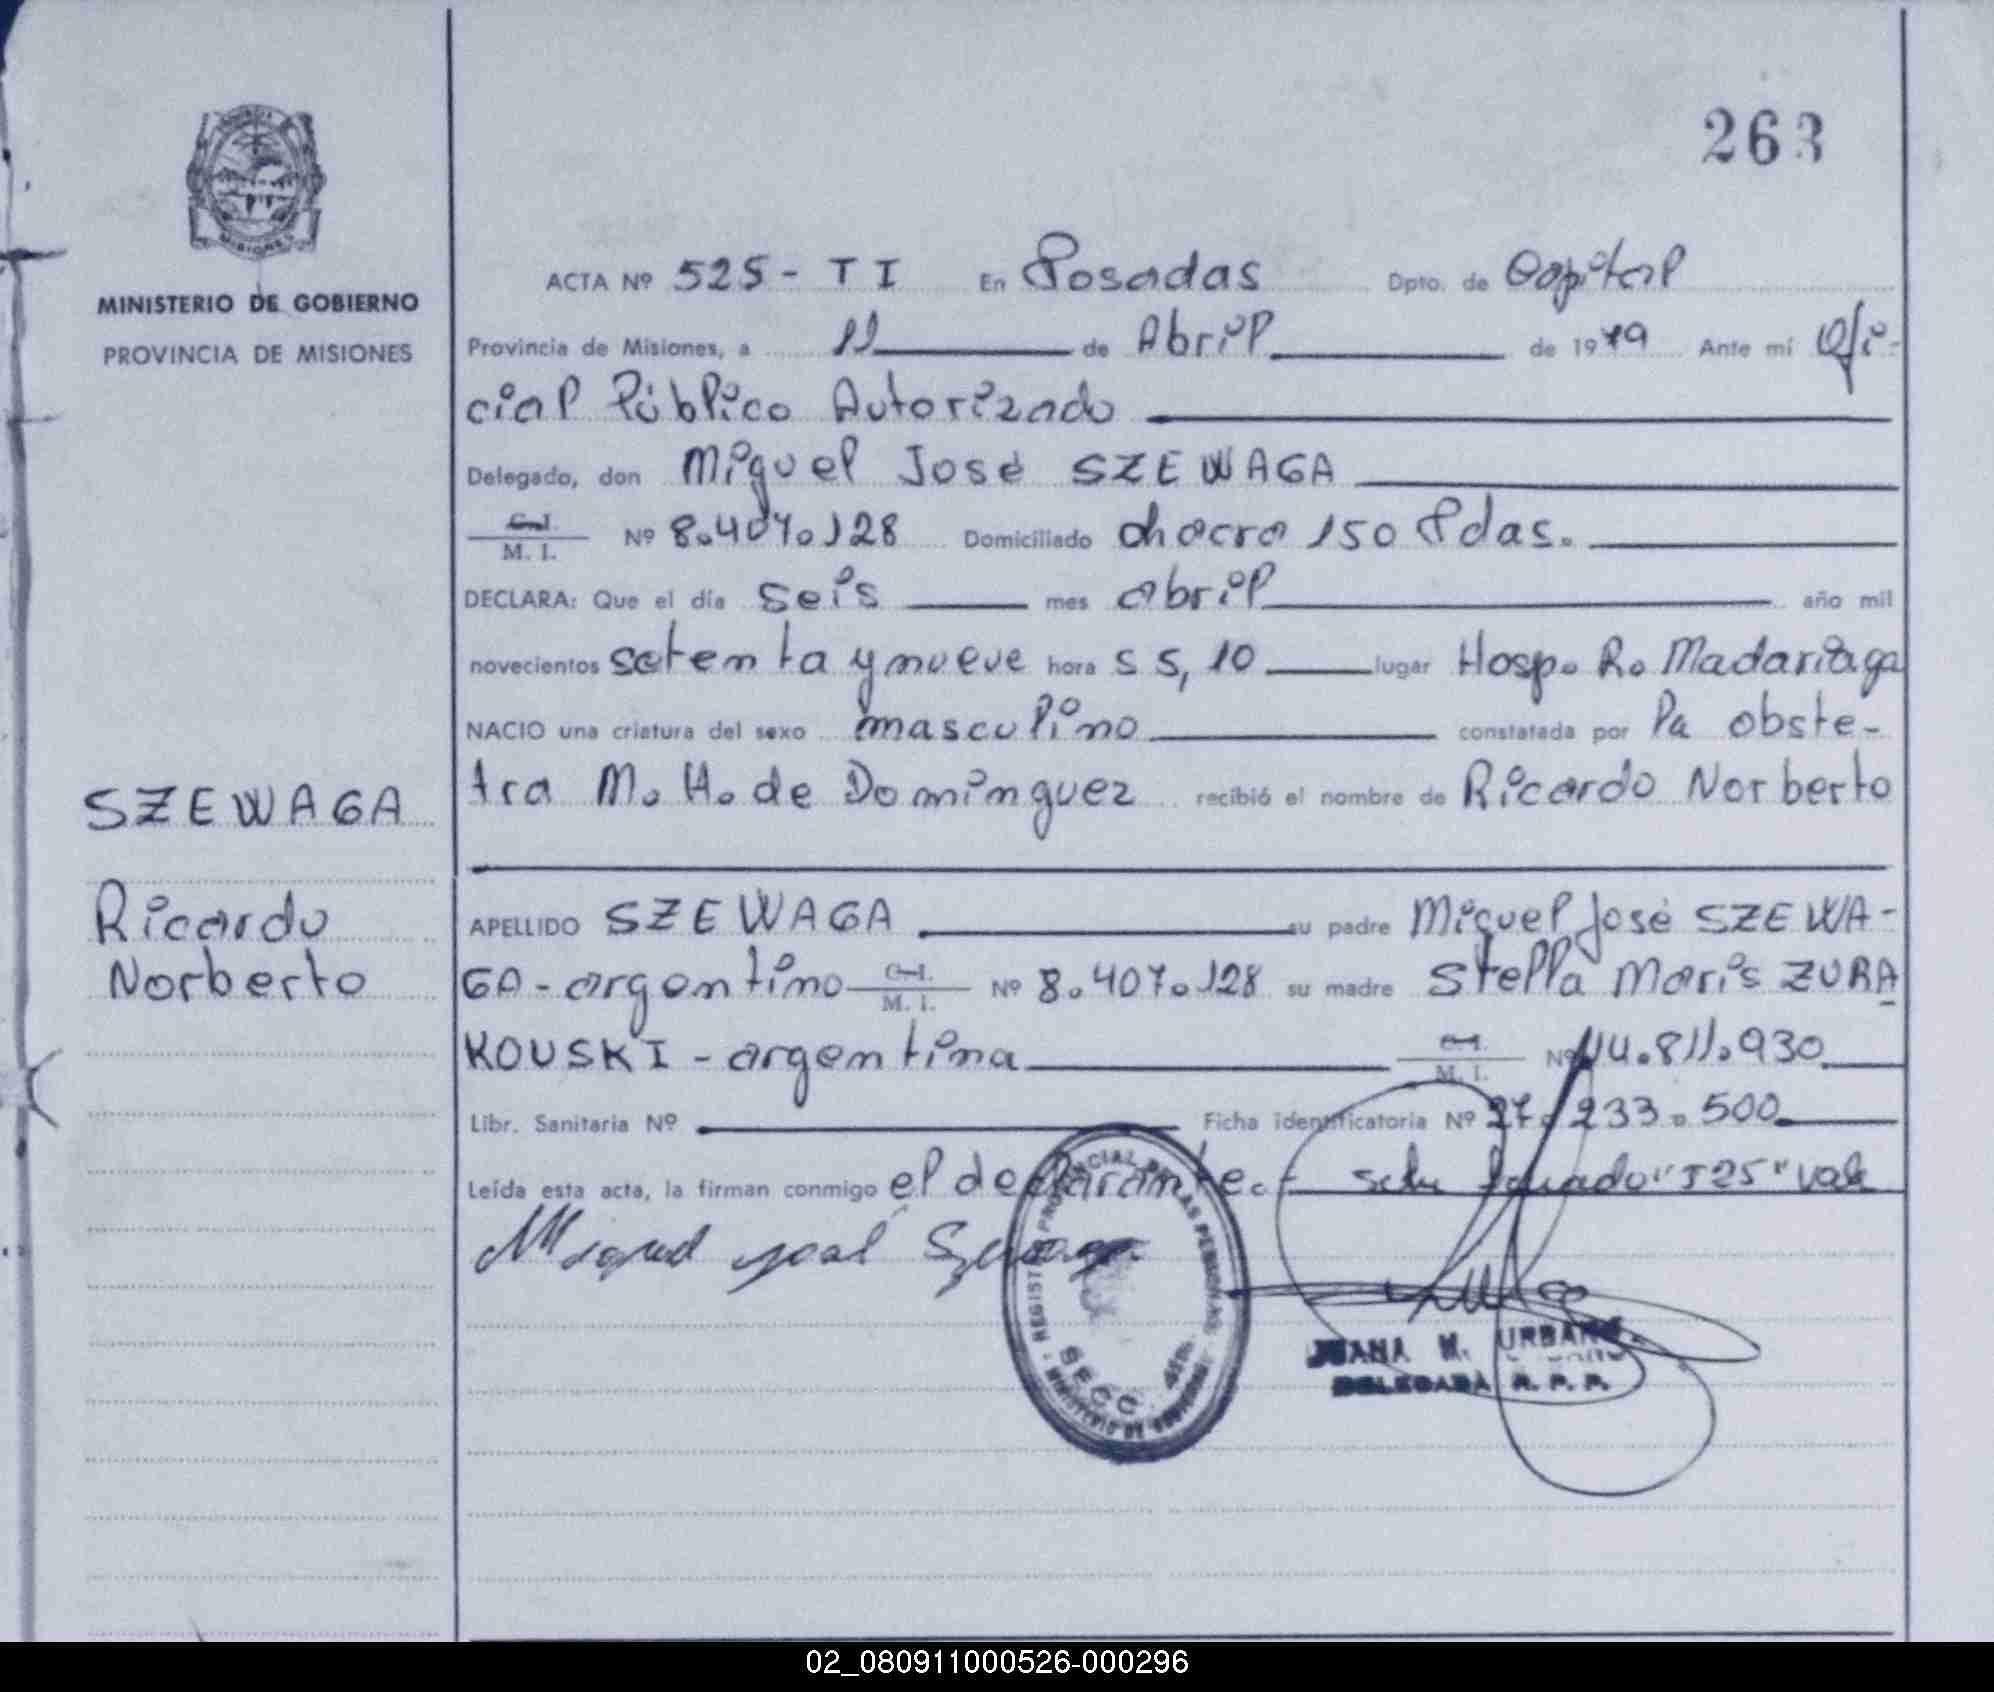 263
MISIONES
MINISTERIO DE GOBIERNO
PROVINCIA DE MISIONES
SZEWAGA
Ricardo
Norberto
ACTA Nº 525 - T I En Posadas Dpto. de Capital
Provincia de Misiones, a 11 de Abril de 1979 Ante mí Ofi-
cial Público Autorizado
Delegado, don Miguel José SZEWAGA
C.I. M. I. Nº 8.407.128 Domiciliado chacra 150 Pdas.
DECLARA: Que el día seis mes abril año mil
novecientos setenta y nueve hora s 5,10 lugar Hosp. R. Madariaga
NACIO una criatura del sexo masculino constatada por la obste-
tra M. H. de Dominguez recibió el nombre de Ricardo Norberto
APELLIDO SZEWAGA su padre Miguel José SZEWA-
GA - argentino C.I. M. I. Nº 8.407.128 su madre Stella Maris ZURA
KOUSKI - argentina C.I. M. I. Nº 14.811.930
Libr. Sanitaria Nº Ficha identificatoria Nº 27.233.500
Leída esta acta, la firman conmigo el declarante. - "525" vale
Miguel José Szewaga
REGISTRO PROVINCIAL DE LAS PERSONAS
SECC. 4ta.
MINISTERIO DE GOBIERNO
JUANA M. URBANO
DELEGADA R. P. P.
02_080911000526-000296